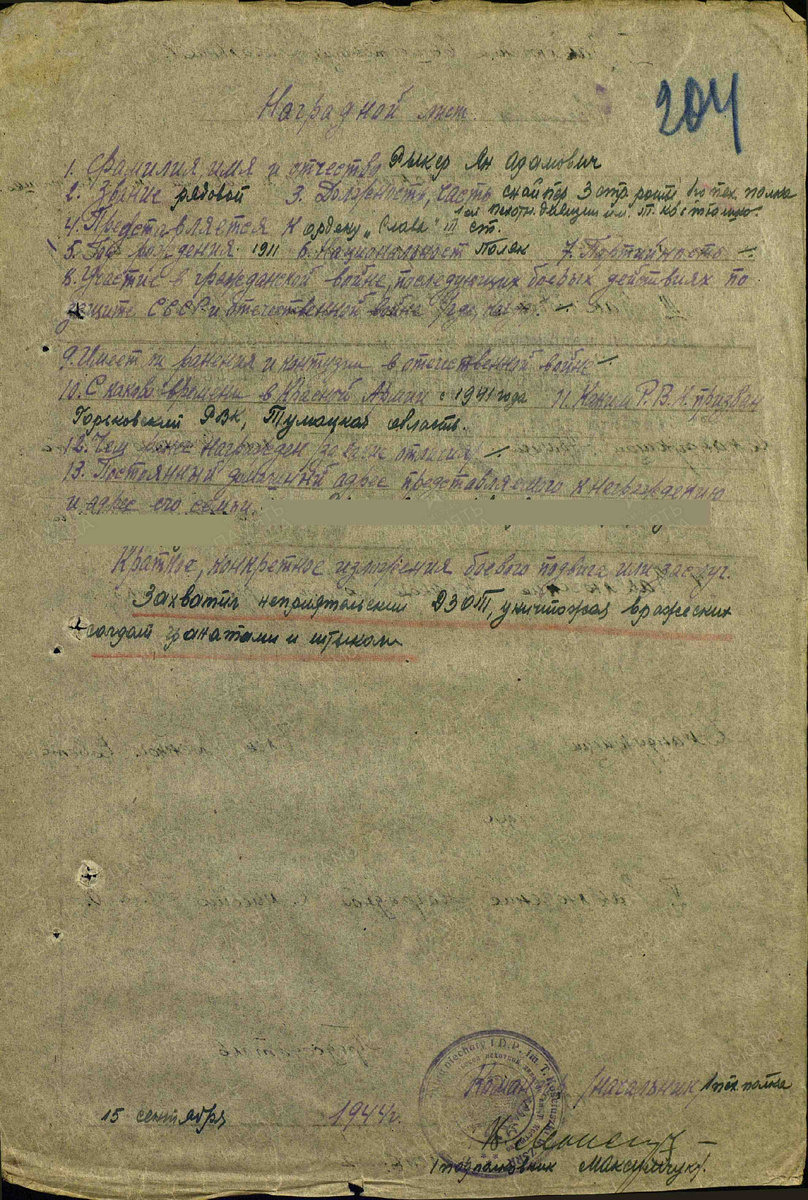 204
Наградной лист.
1. Фамилия, имя и отчество Рыкер Ян Адамович
2. Звание рядовой 3. Должность, часть снайпер 3 стр. роты 1го пех полка
1ой пехотн. дивизии им. Т.
4. Представляется к ордену "Слава" III ст.
5. Год рождения. 1911 6. Национальност поляк 7. Партийность —
8. Участие в гражданской войне, последующих боевых действиях по
защите СССР и отечественной войне —
9. Имеет ли ранения и контузии в отечественной войне —
10. С каково времени в Красной Армии с 1941 года 11. Каким Р.В.К. призван
РВК, область.
12. Чем ранее награжден за какие отличия —
13. Постоянный домашний адрес представляемого к награждению
и адрес его семьи.
Краткое, конкретное изложения боевого подвига или заслуг.
Захватил неприятельский ДЗОТ, уничтожая вражеских
солдат гранатами и штыком
Командир /начальник/ 1 пех полка
15 сентября 1944 г.
/подполковник Максимчук/.